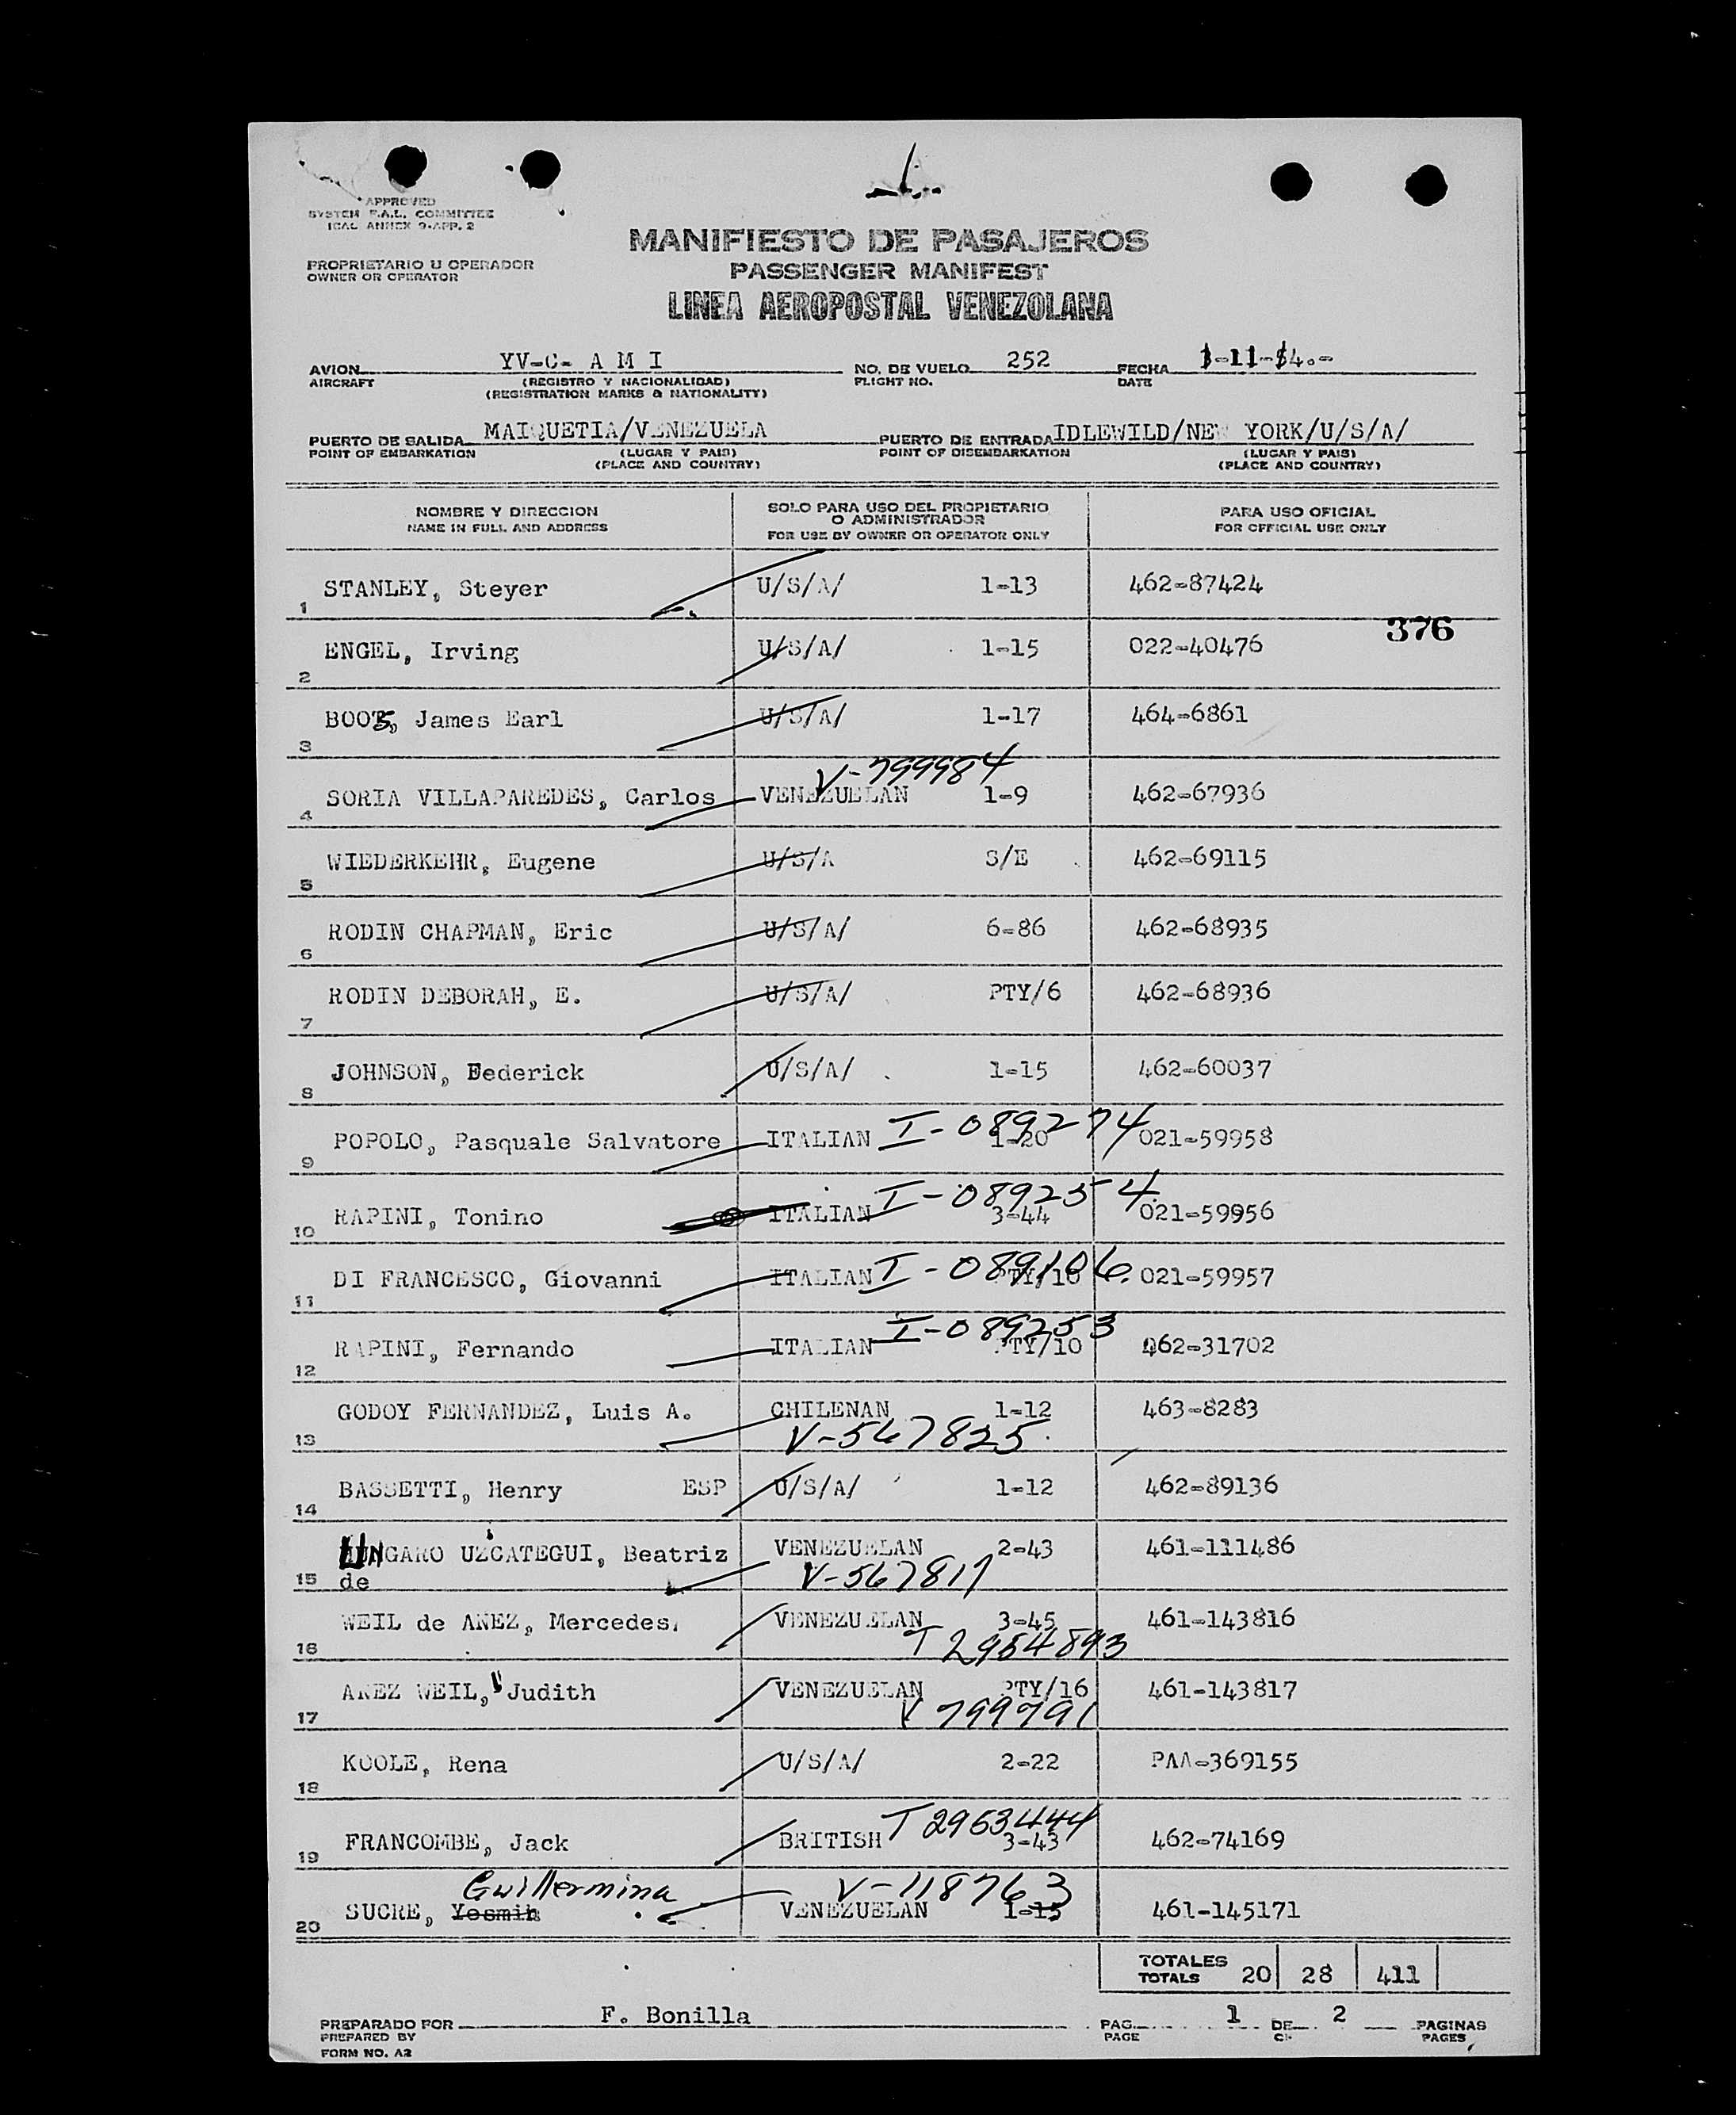 APPROVED
SYSTEM F.A.L. COMMITTEE
ICAL ANNEX 9-APP. 2
MANIFIESTO DE PASAJEROS
PROPRIETARIO U OPERADOR
OWNER OR OPERATOR
PASSENGER MANIFEST
LINEA AEROPOSTAL VENEZOLANA
AVION YV-C- A M I NO. DE VUELO 252 FECHA
AIRCRAFT (REGISTRO Y NACIONALIDAD) FLIGHT NO. DATE
(REGISTRATION MARKS & NATIONALITY)
PUERTO DE SALIDA MAIQUETIA/VENEZUELA PUERTO DE ENTRADA IDLEWILD/NEW YORK/U/S/A/
POINT OF EMBARKATION (LUGAR Y PAIS) POINT OF DISEMBARKATION (LUGAR Y PAIS)
(PLACE AND COUNTRY) (PLACE AND COUNTRY)
NOMBRE Y DIRECCION SOLO PARA USO DEL PROPIETARIO O ADMINISTRADOR PARA USO OFICIAL
NAME IN FULL AND ADDRESS FOR USE BY OWNER OR OPERATOR ONLY FOR OFFICIAL USE ONLY
1 STANLEY, Steyer U/S/A/ 1-13 462-87424
376
2 ENGEL, Irving U/S/A/ 1-15 022-40476
3 BOOTS, James Earl U/S/A/ 1-17 464-6861
V-799984
4 SORIA VILLAPAREDES, Carlos VENEZUELAN 1-9 462-67936
5 WIEDERKEHR, Eugene U/S/A S/E 462-69115
6 RODIN CHAPMAN, Eric U/S/A/ 6-86 462-68935
7 RODIN DEBORAH, E. U/S/A/ PTY/6 462-68936
8 JOHNSON, Federick U/S/A/ 1-15 462-60037
I-089274
9 POPOLO, Pasquale Salvatore ITALIAN 1-20 021-59958
I-089254
10 RAPINI, Tonino ITALIAN 3-44 021-59956
I-089106
11 DI FRANCESCO, Giovanni ITALIAN PTY/10 021-59957
I-089253
12 RAPINI, Fernando ITALIAN PTY/10 062-31702
13 GODOY FERNANDEZ, Luis A. CHILENAN 1-12 463-8283
V-567825
14 BASSETTI, Henry ESP U/S/A/ 1-12 462-89136
15 UNGARO UZCATEGUI, Beatriz de VENEZUELAN 2-43 461-111486
V-567817
16 WEIL de AÑEZ, Mercedes. VENEZUELAN 3-45 461-143816
T 2954893
17 AÑEZ WEIL, Judith VENEZUELAN PTY/16 461-143817
V 799791
18 KOOLE, Rena U/S/A/ 2-22 PAA-369155
T 2953444
19 FRANCOMBE, Jack BRITISH 3-43 462-74169
Guillermina V-118763
20 SUCRE, Yosmin VENEZUELAN 1-15 461-145171
TOTALES
TOTALS 20 28 411
PREPARADO POR F. Bonilla PAG. 1 DE 2 PAGINAS
PREPARED BY PAGE OF PAGES
FORM NO. A2